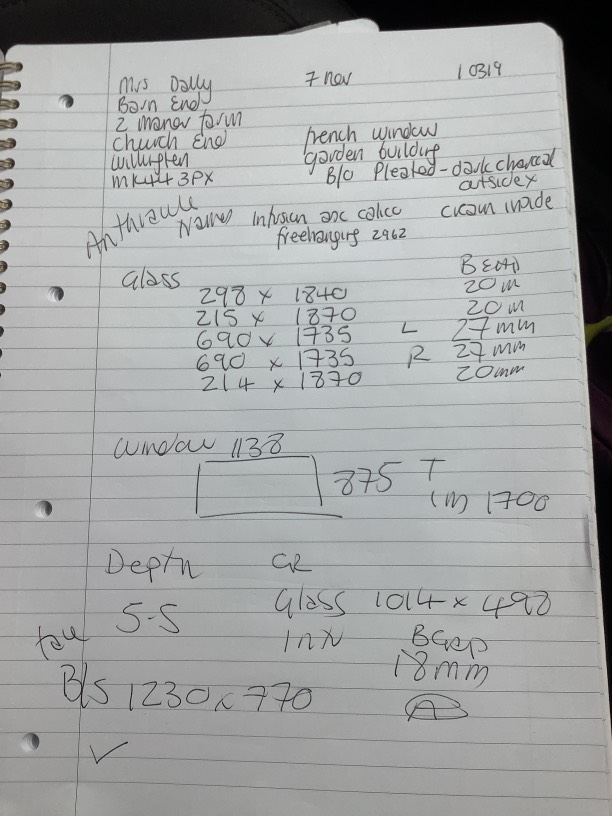 Mrs Dally 7 Nov 10319
Barn End
2 Manor farm
Church End french window
garden building
MK44 3PX B/O Pleated - dark charcal
outside x
Infusion asc calico cream inside
freehanging 2962
Glass BEAD
298 x 1840 20m
215 x 1870 20m
690 x 1735 L 27mm
690 x 1735 R 27mm
214 x 1870 20mm
window 1138
875 T
(M) 1700
Depth GR
5.5 Glass 1014 x 490
BGap
18mm
B/S 1230 x 770